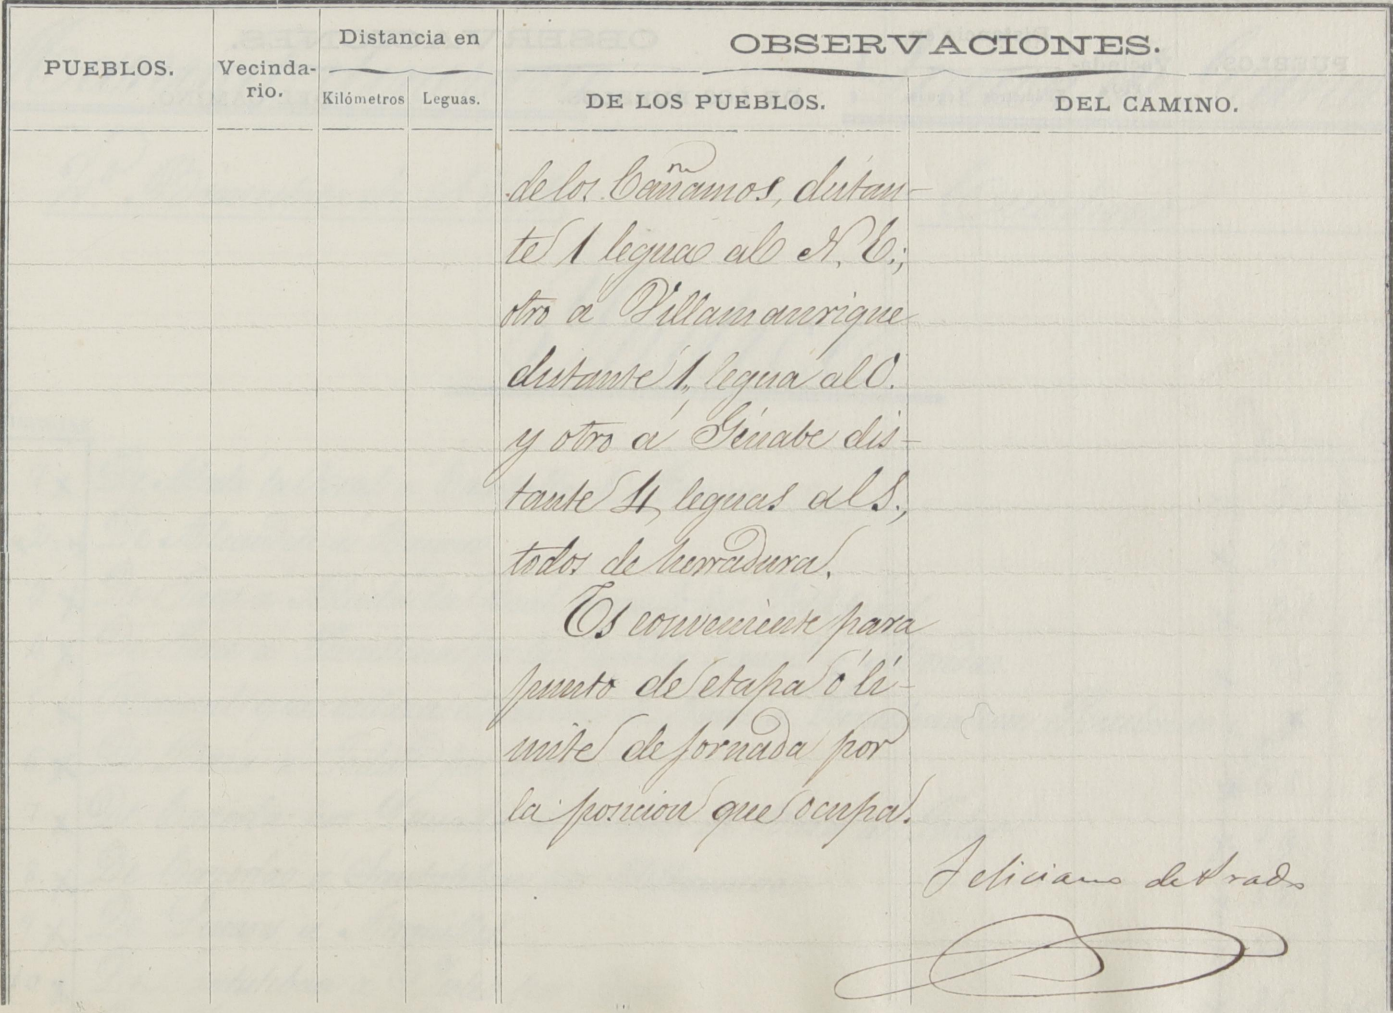 PUEBLOS.
Vecinda-
rio.
Distancia en
Kilómetros
Leguas.
OBSERVACIONES.
DE LOS PUEBLOS.
DEL CAMINO.
de los Cañamos, distan-
te 1 legua al N. E.;
otro a Villamanrique
distante 1, legua al O.
y otro á Génabe dis-
tante 4, leguas al S.,
todos de herradura.
Es conveniente para
punto de etapa ó lí-
mite de jornada por
la posicion que ocupa.
Feliciano de Prado